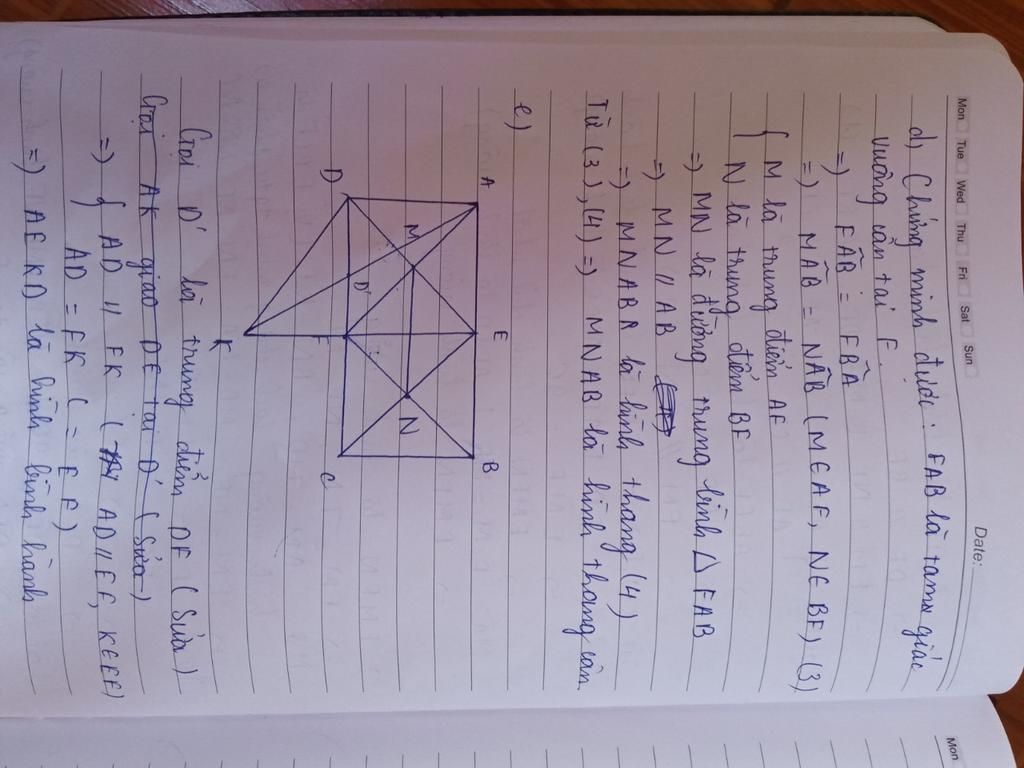 Date:
Mon Tue Wed Thu Fri Sat Sun
d) Chứng minh được: FAB là tam giác
vuông cân tại F
=) FÂB = FB̂A
=) MÂB = NB̂A (M∈AF, N∈BF) (3)
{ M là trung điểm AF
{ N là trung điểm BF
=) MN là đường trung bình △ FAB
=) MN // AB
=) MNAB là hình thang (4)
Từ (3), (4) =) MNAB là hình thang cân
e)
A E B
M N
D D' F C
K
Gọi D' là trung điểm DF (Sửa)
Gọi AK giao DE tại D' (Sửa)
=) { AD // FK ( AD // EF, K∈EF)
AD = FK ( = EF)
=) AFKD là hình bình hành
Mon